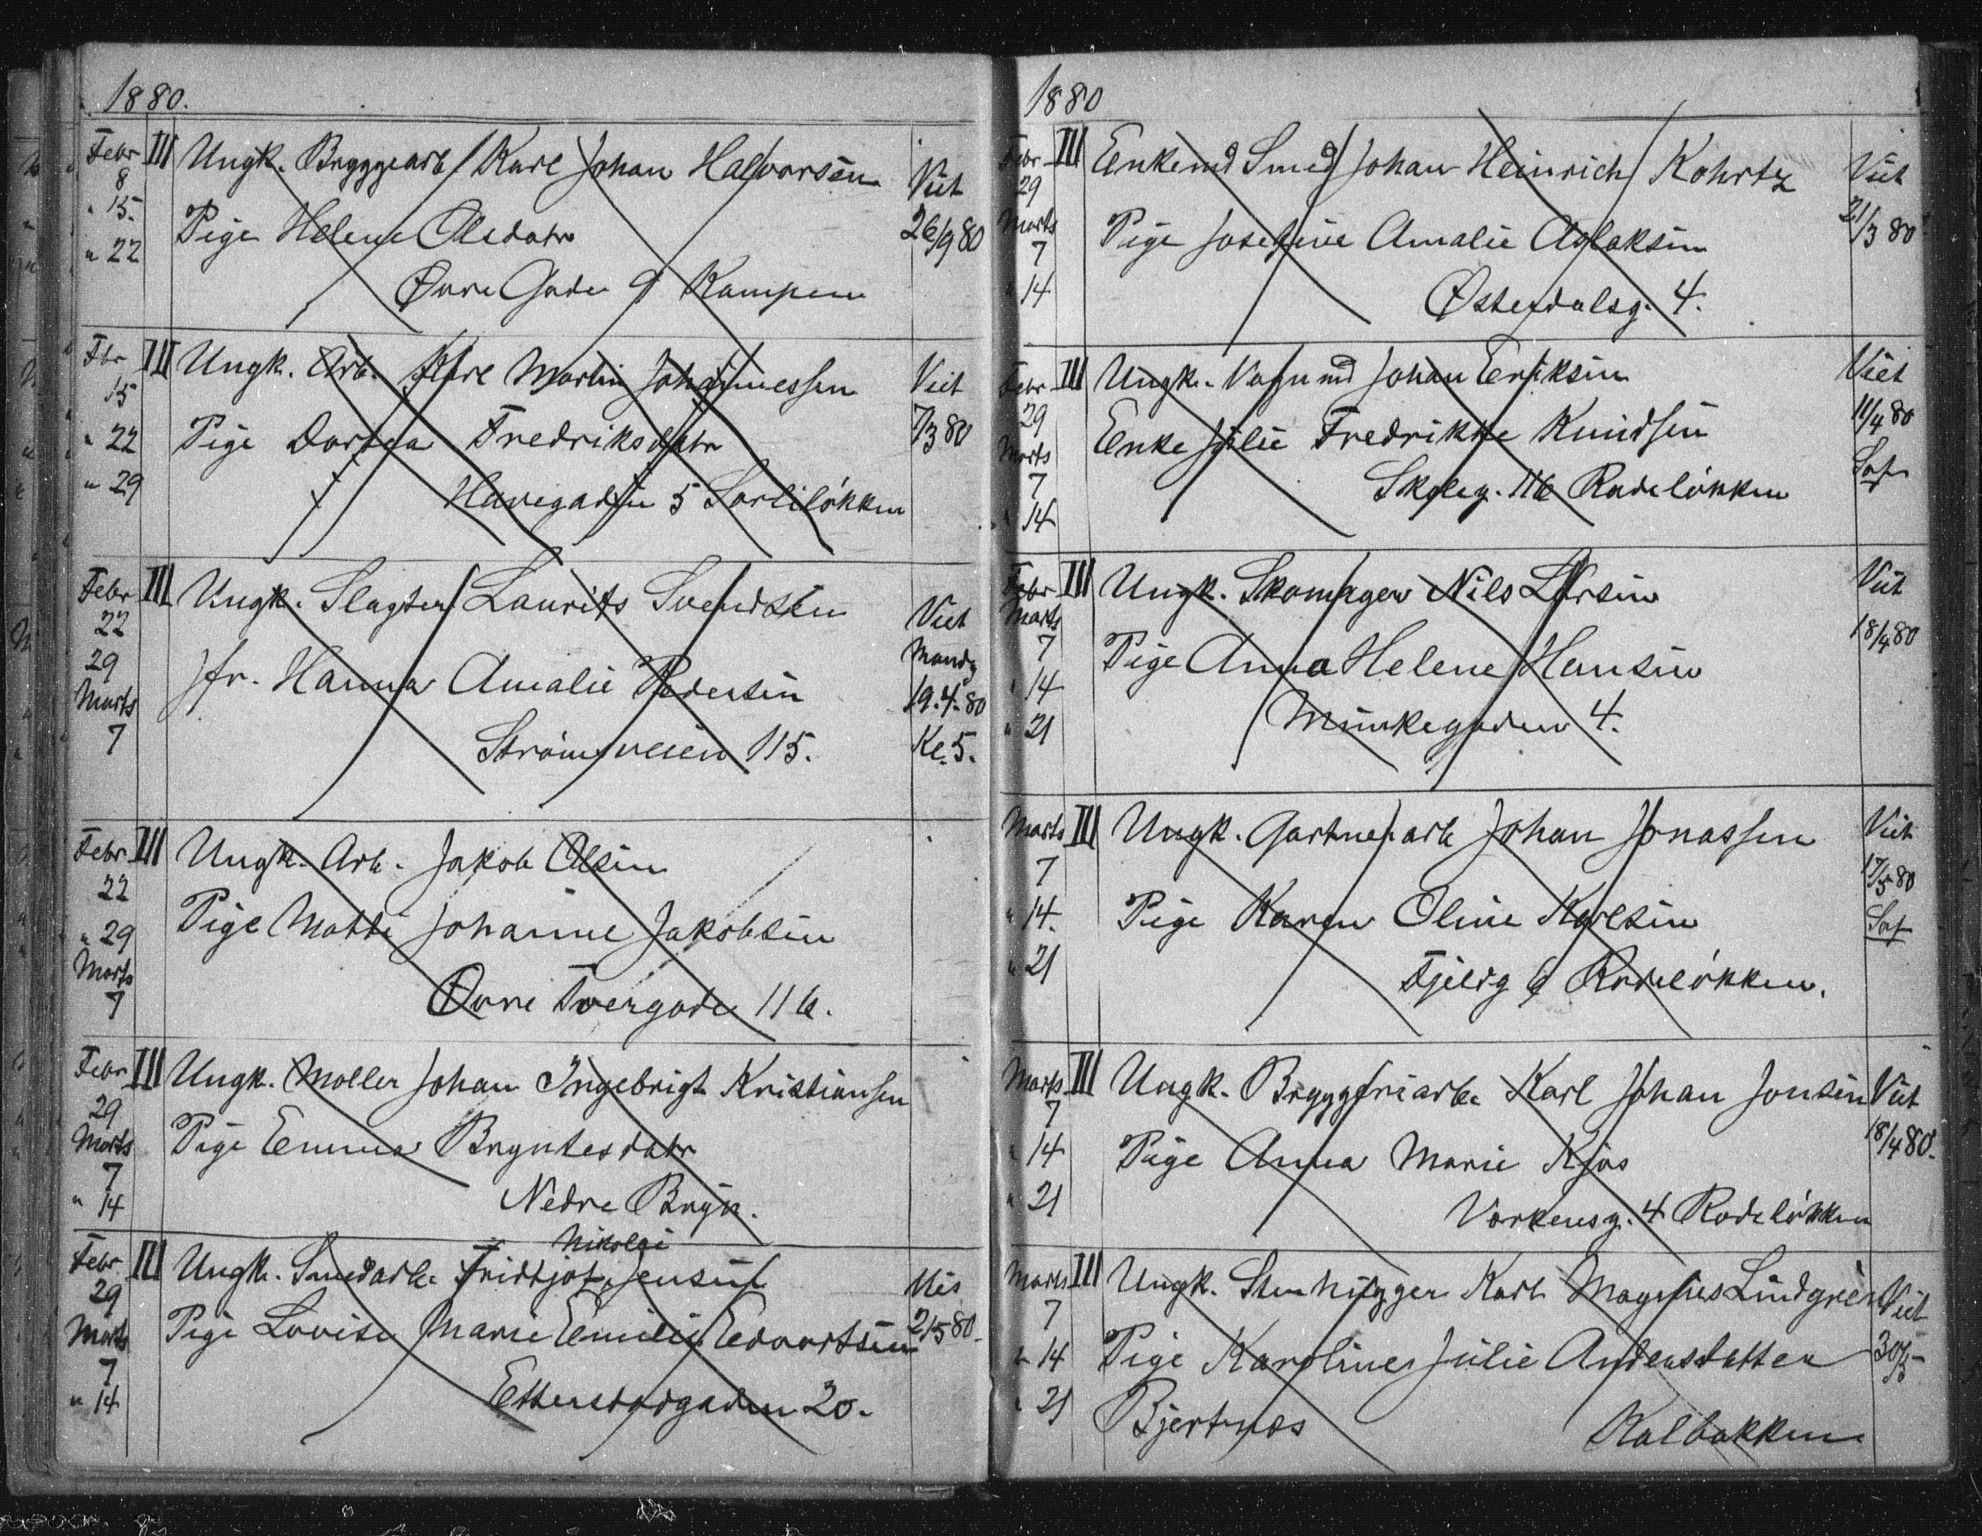 1880.
Febr 8 III Ungk. Bryggearb Karl Johan Halvorsen Viet
" 15. Pige Helene Olsdatr 26/9 80
" 22 Øvre Gade 9 Kampen
Fbr 15 III Ungk. Arb. Karl Martin Johannessen Viet
" 22 Pige Dortea Fredriksdatr 7/3 80
" 29 Havegaden 5 Sorliløkken
Febr 22 III Ungk. Slagter Laurits Svendsen Viet
29 Jfr. Hanna Amalie Pedersen Mandg 19.4.80
Marts 7 Strømsveien 115. Kl. 5.
Febr 22 III Ungk. Arb. Jakob Olsen
" 29 Pige Mathi Johanne Jakobsen
Marts 7 Øvre Tvergade 116.
Febr 29 III Ungk. Møller Johan Ingebrigt Kristiansen
Marts 7 Pige Emma Bryntesdatr
" 14 Nedre Bryn.
Nikolai
Febr 29 III Ungk. Smedarb. Fridtjof Jensen Vies
Marts 7 Pige Lovise Marie Emilie Edvartsen 2/5 80.
" 14 Etterstadgaden 20.
1880
Febr 29 III Enkemd Smed Johan Heinrich Kohrtz Viet
Marts 7 Pige Josefine Amalie Aslaksen 21/3 80
" 14 Østerdalsg. 4.
Febr 29 III Ungk. Vognmd Johan Eriksen Viet
Marts 7 Enke Julie Fredrikke Knudsen 11/4 80
" 14 Skoleg. 116 Rodeløkken
Febr III Ungk. Skomager Nils Larsen Viet
Marts 7 Pige Anna Helene Hansen 18/4 80
" 14 Munkegaden 4.
" 21
Marts 7 III Ungk. Gartnerarb Johan Jonassen Viet
" 14. Pige Karen Oline Karlsen 17/5 80
" 21 Fjeldg 6 Rodeløkken.
Marts 7 III Ungk. Bryggeriarb. Karl Johan Jonsen Viet
" 14 Pige Anna Marie Kjos 18/4 80.
" 21 Verkensg. 4 Rodeløkken
Marts 7 III Ungk. Stenhugger Karl Magnus Lindgren Viet
" 14 Pige Karoline Julie Andersdatter 30/5
" 21 Bjertnæs Kalbakken